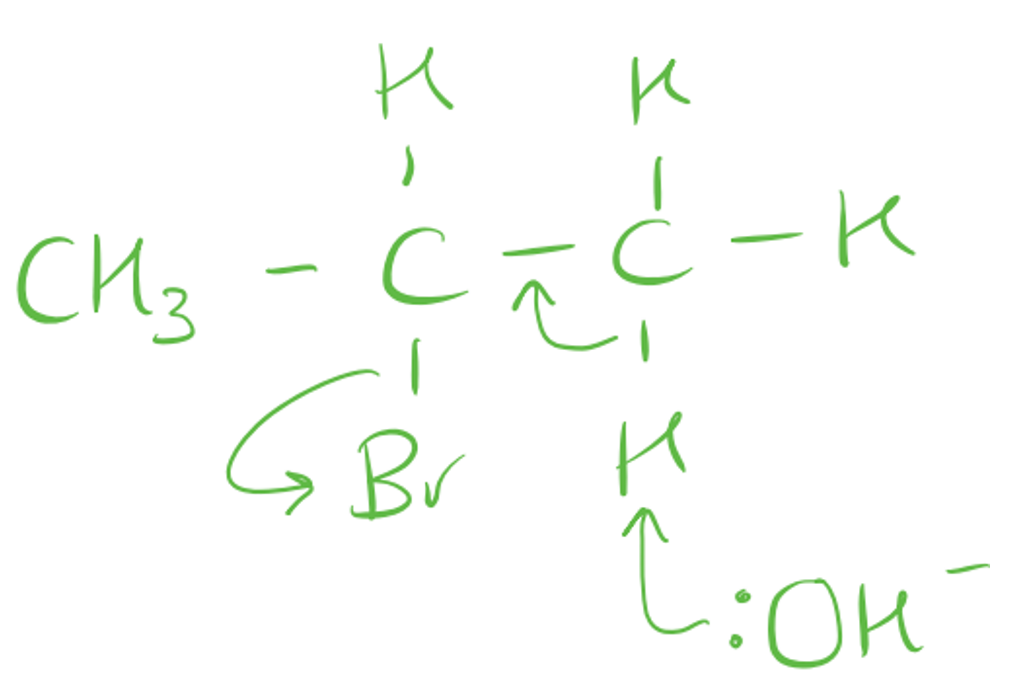 H H
CH₃ - C - C - H
Br H
:OH⁻